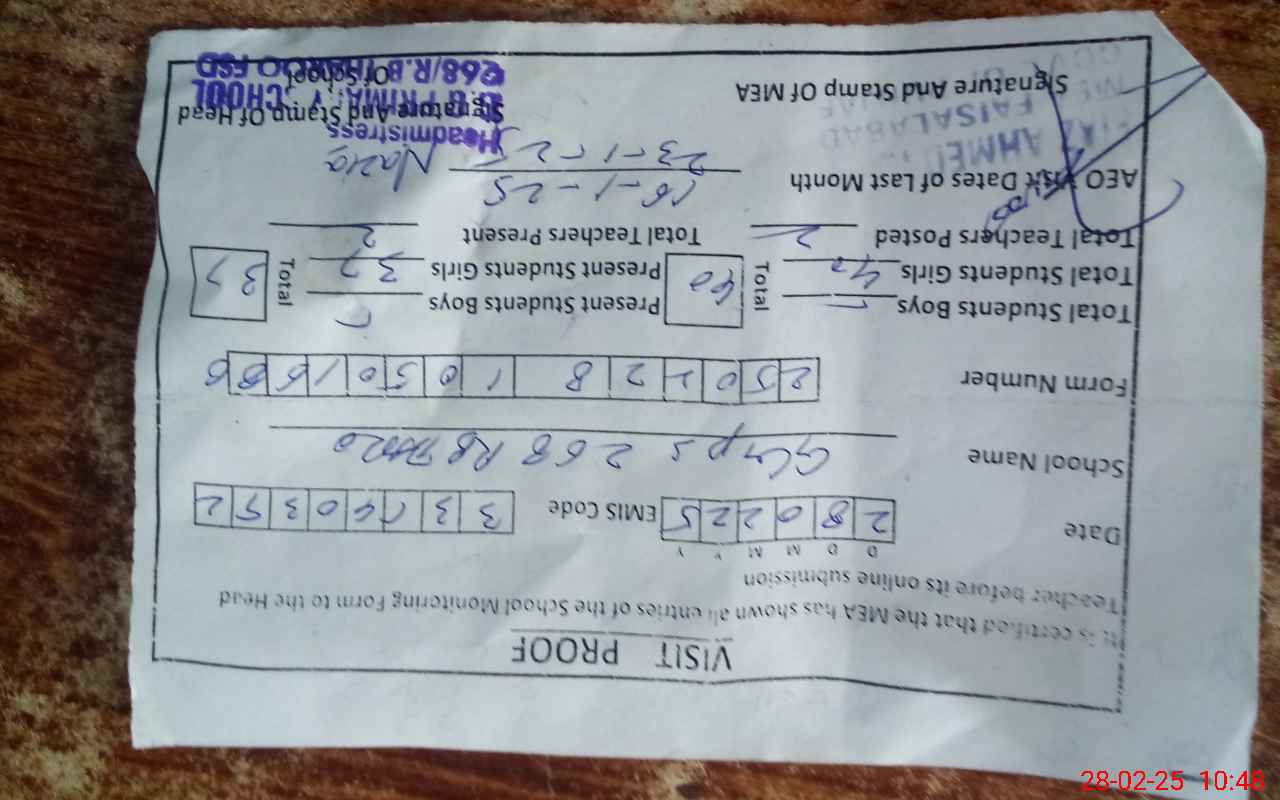 VISIT PROOF
It is certified that the MEA has shown all entries of the School Monitoring Form to the Head
Teacher before its online submission
D D M M Y Y
Date 280225 EMIS Code 33140392
School Name GGMPS 268 RB
Form Number
Total Students Boys – Total 40 Present Students Boys – Total 37
Total Students Girls 40 Present Students Girls 37
Total Teachers Posted 2 Total Teachers Present 2
AEO Visit Dates of Last Month 16-1-25
23-1-25 Nazia
AHMED
FAISALABAD
Headmistress
Signature And Stamp Of MEA Signature And Stamp Of Head
Of School
PRIMARY SCHOOL
268/R.B FSD
28-02-25 10:48